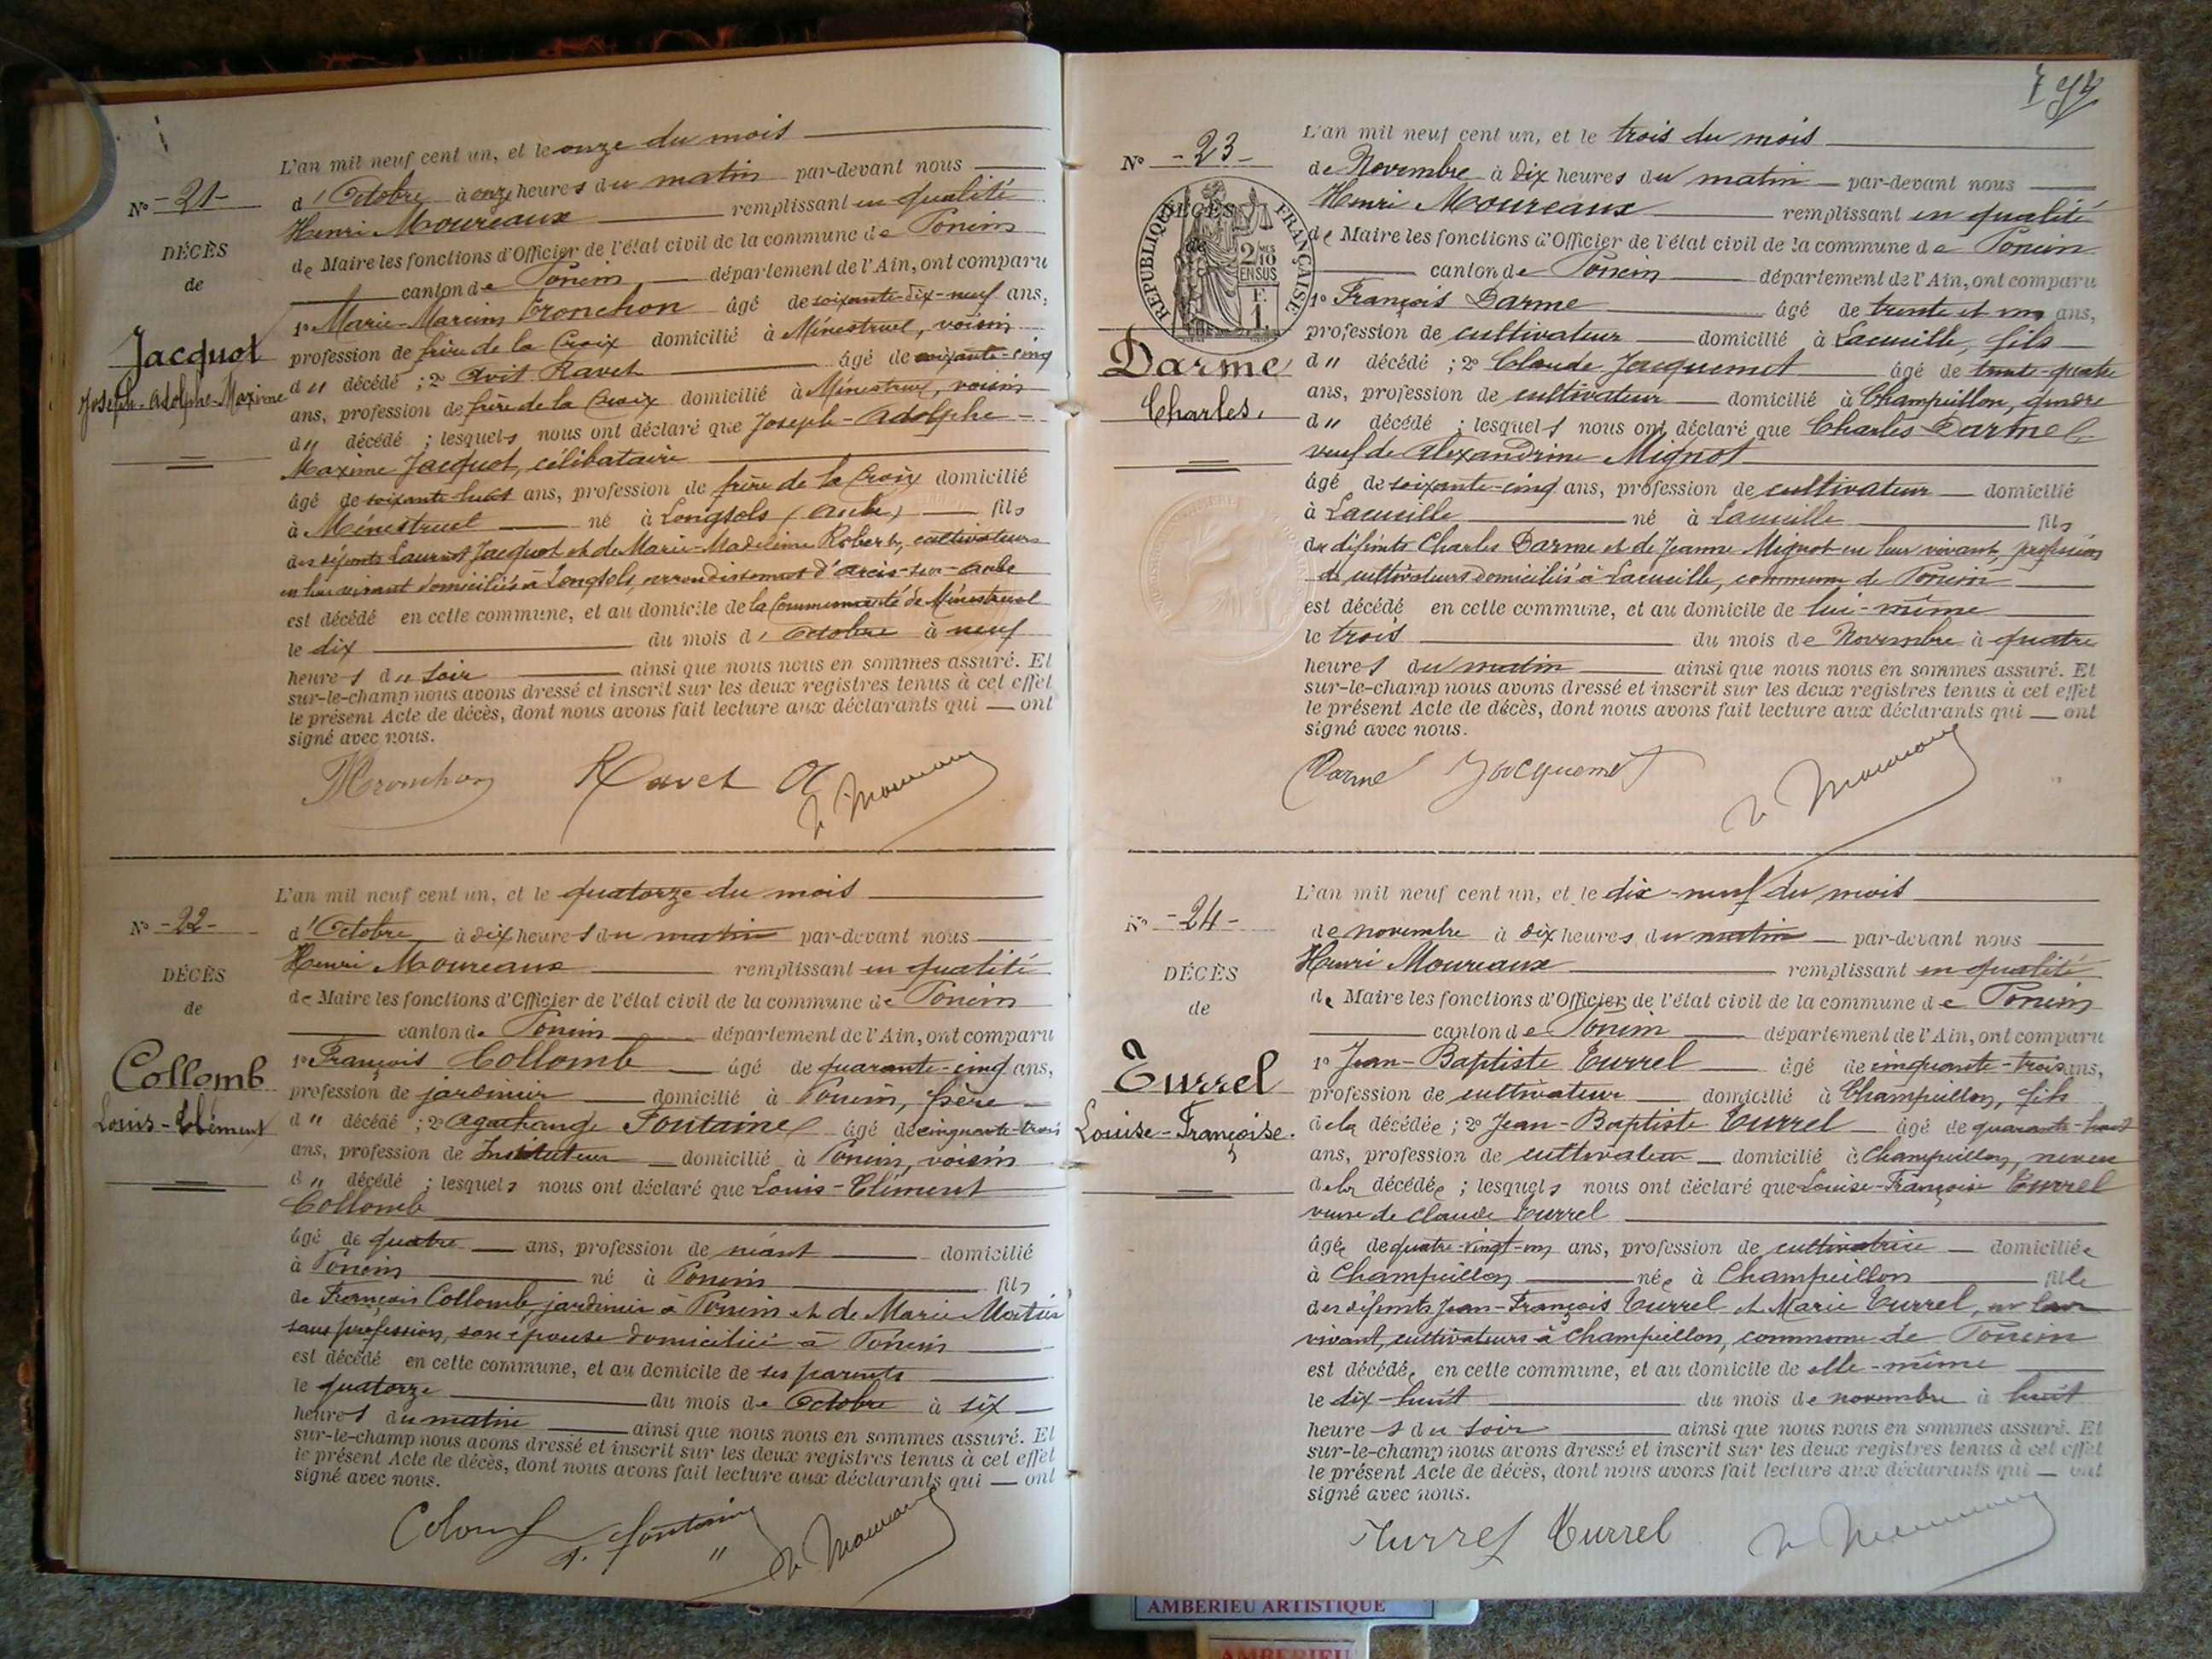 L'an mil neuf cent un, et le onze du mois
N° -21- d'Octobre à onze heures du matin par-devant nous
Henri Moureaux remplissant en qualité
DÉCÈS
de Maire les fonctions d'Officier de l'état civil de la commune de Poncin
de
canton de Poncin département de l'Ain, ont comparu
1° Marie-Marcim Tronchon âgé de soixante-dix-neuf ans,
Jacquot
profession de frère de la Croix domicilié à Ménestruel, voisin
Joseph-Adolphe-Maxime
du décédé ; 2° Avit Ravet âgé de soixante-cinq
ans, profession de frère de la Croix domicilié à Ménestruel, voisin
du décédé ; lesquels nous ont déclaré que Joseph-Adolphe-
Maxime Jacquot, célibataire
âgé de soixante-huit ans, profession de frère de la Croix domicilié
à Ménestruel né à Longsols (Aube) fils
des défunts Laurent Jacquot et de Marie-Madeleine Robert, cultivateurs
en leur vivant domiciliés à Longsols, arrondissement d'Arcis-sur-Aube
est décédé en cette commune, et au domicile de la Communauté de Ménestruel
le dix du mois d'Octobre à neuf
heures du soir ainsi que nous nous en sommes assuré. Et
sur-le-champ nous avons dressé et inscrit sur les deux registres tenus à cet effet
le présent Acte de décès, dont nous avons fait lecture aux déclarants qui ont
signé avec nous.
Tronchon Ravet A h Moureaux
L'an mil neuf cent un, et le quatorze du mois
N° -22- d'Octobre à dix heures du matin par-devant nous
Henri Moureaux remplissant en qualité
DÉCÈS
de Maire les fonctions d'Officier de l'état civil de la commune de Poncin
de
canton de Poncin département de l'Ain, ont comparu
1° François Collomb âgé de quarante-cinq ans,
Collomb
profession de jardinier domicilié à Poncin, père
Louis-Clément
du décédé ; 2° Agathange Fontaine âgé de cinquante-trois
ans, profession de Instituteur domicilié à Poncin, voisin
du décédé ; lesquels nous ont déclaré que Louis-Clément
Collomb
âgé de quatre ans, profession de néant domicilié
à Poncin né à Poncin fils
de François Collomb, jardinier à Poncin et de Marie
sans profession, son épouse domiciliée à Poncin
est décédé en cette commune, et au domicile de ses parents
le quatorze du mois de Octobre à six
heures du matin ainsi que nous nous en sommes assuré. Et
sur-le-champ nous avons dressé et inscrit sur les deux registres tenus à cet effet
le présent Acte de décès, dont nous avons fait lecture aux déclarants qui ont
signé avec nous.
Colomb A. Fontaine h Moureaux
L'an mil neuf cent un, et le trois du mois
N° -23- de Novembre à dix heures du matin par-devant nous
Henri Moureaux remplissant en qualité
DÉCÈS
de
RÉPUBLIQUE FRANÇAISE
2/10 MES EN SUS
F. 1
de Maire les fonctions d'Officier de l'état civil de la commune de Poncin
canton de Poncin département de l'Ain, ont comparu
1° François Darme âgé de trente et un ans,
profession de cultivateur domicilié à Lacueille, fils
Darme
du décédé ; 2° Claude Jacquemet âgé de trente-quatre
ans, profession de cultivateur domicilié à Champeillon, gendre
Charles.
du décédé ; lesquels nous ont déclaré que Charles Darme
veuf de Alexandrine Mignot
âgé de soixante-cinq ans, profession de cultivateur domicilié
à Lacueille né à Lacueille fils
des défunts Charles Darme et de Jeanne Mignot en leur vivant, profession
de cultivateurs domiciliés à Lacueille, commune de Poncin
est décédé en cette commune, et au domicile de lui-même
le trois du mois de Novembre à quatre
heures du matin ainsi que nous nous en sommes assuré. Et
sur-le-champ nous avons dressé et inscrit sur les deux registres tenus à cet effet
le présent Acte de décès, dont nous avons fait lecture aux déclarants qui ont
signé avec nous.
Darme Jacquemet h Moureaux
L'an mil neuf cent un, et le dix-neuf du mois
N° -24- de novembre à dix heures du matin par-devant nous
Henri Moureaux remplissant en qualité
DÉCÈS
de Maire les fonctions d'Officier de l'état civil de la commune de Poncin
de
canton de Poncin département de l'Ain, ont comparu
1° Jean-Baptiste Turrel âgé de cinquante-trois ans,
Turrel
profession de cultivateur domicilié à Champeillon, fils
Louise-Françoise.
de la décédée ; 2° Jean-Baptiste Turrel âgé de quarante-huit
ans, profession de cultivateur domicilié à Champeillon, neveu
de la décédée ; lesquels nous ont déclaré que Louise-Françoise Turrel
veuve de Claude Turrel
âgée de quatre-vingt-un ans, profession de cultivatrice domiciliée
à Champeillon née à Champeillon fille
des défunts Jean-François Turrel et Marie Turrel, en leur
vivant, cultivateurs à Champeillon, commune de Poncin
est décédée en cette commune, et au domicile de elle-même
le dix-huit du mois de novembre à huit
heures du soir ainsi que nous nous en sommes assuré. Et
sur-le-champ nous avons dressé et inscrit sur les deux registres tenus à cet effet
le présent Acte de décès, dont nous avons fait lecture aux déclarants qui ont
signé avec nous.
Turrel Turrel h Moureaux
AMBERIEU ARTISTIQUE
AMBERIEU